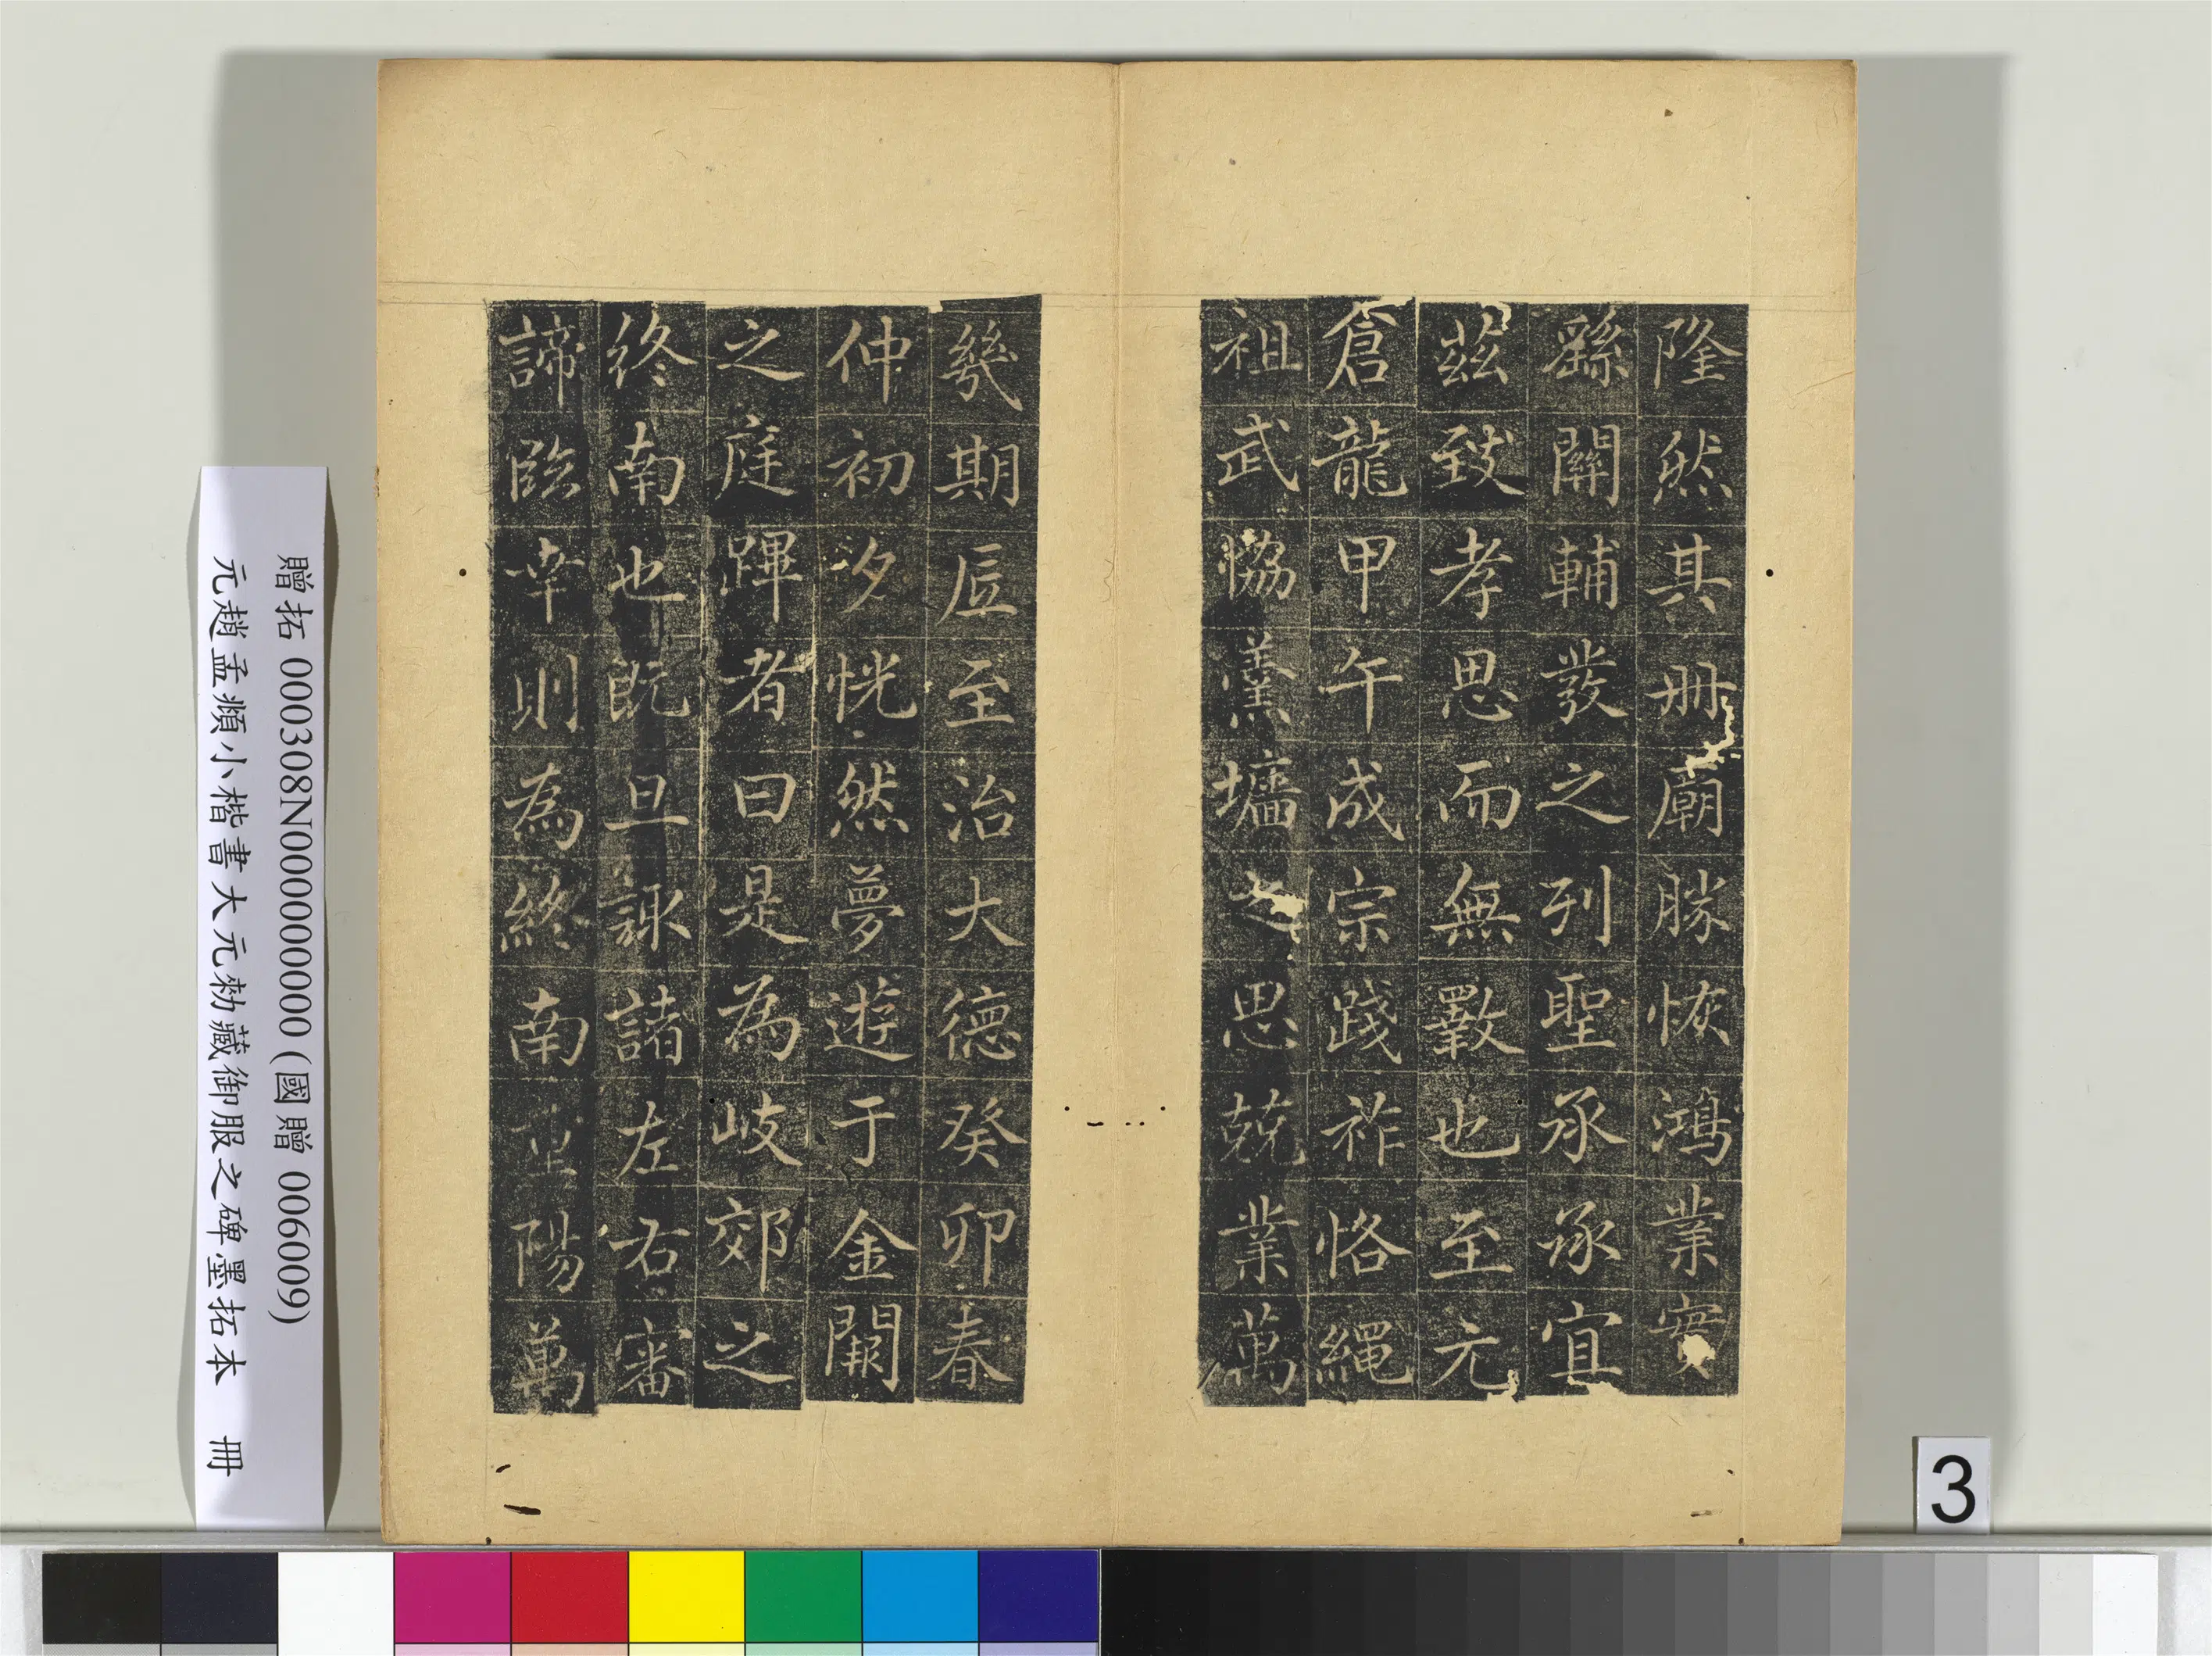 隆然其冊廟勝恢鴻業實
繇關輔發之列聖承承宜
茲致孝思而無斁也至元
倉龍甲午成宗踐祚恪繩
祖武恊羹墻之思兢業萬
幾期底至治大德癸卯春
仲初夕恍然夢遊于金闕
之庭暉者曰是為岐郊之
終南也既旦諏諸左右審
諦臨幸則為終南㞷陽萬
贈拓 000308N000000000 (國贈 006009)
元趙孟頫小楷書大元勑藏御服之碑墨拓本 冊
3